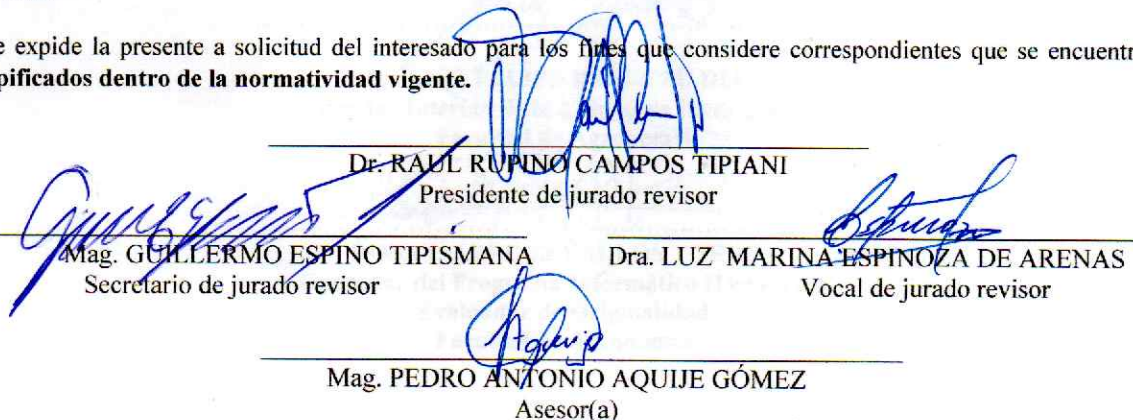 e expide la presente a solicitud del interesado para los fines que considere correspondientes que se encuentr
pificados dentro de la normatividad vigente.
Dr. RAUL RUPINO CAMPOS TIPIANI
Presidente de jurado revisor
Mag. GUILLERMO ESPINO TIPISMANA
Secretario de jurado revisor
Dra. LUZ MARINA ESPINOZA DE ARENAS
Vocal de jurado revisor
Mag. PEDRO ANTONIO AQUIJE GÓMEZ
Asesor(a)